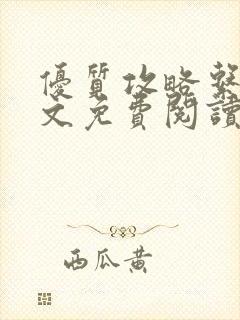 優質攻略繫
文免費閱讀
西瓜黄